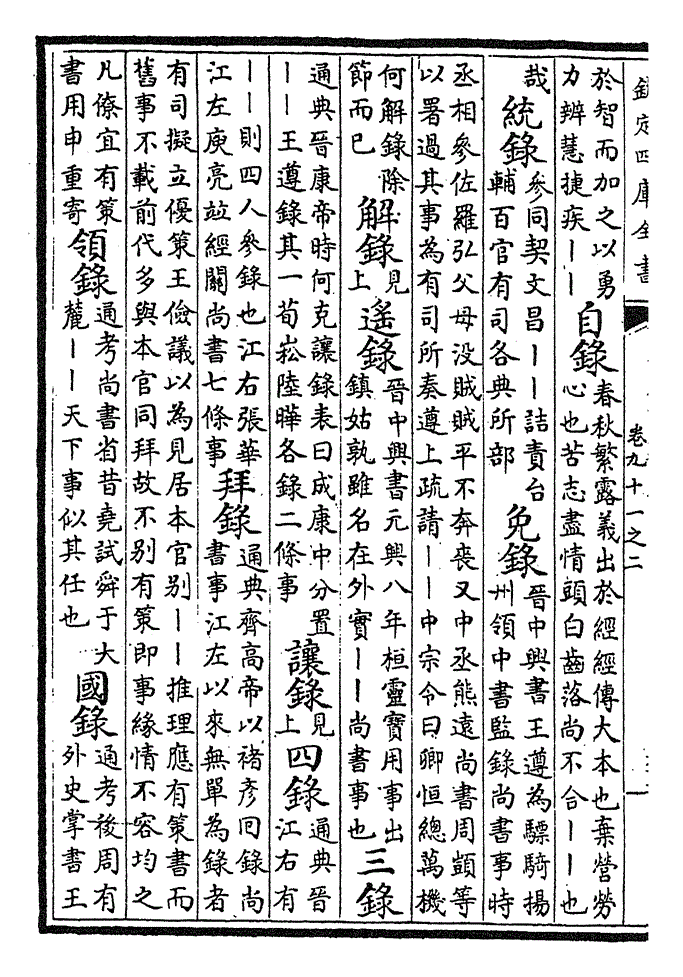 欽定四庫全書
卷九十一之二
於智而加之以勇
力辨慧捷疾丨丨
自錄
春秋繁露義出於經經傳大本也棄營勞
心也苦志盡情頭白齒落尚不合丨丨也
哉
統錄
參同契文昌丨丨詰責台
輔百官有司各典所部
免錄
晉中興書王遵為驃騎揚
州領中書監錄尚書事時
丞相參佐羅弘父母没賊賊平不奔喪又中丞熊遠尚書周顗等
以署過其事為有司所奏遵上疏請丨丨中宗令曰卿恒總萬機
何解錄除
節而已
解錄
見
上
遙錄
晉中興書元興八年桓靈寶用事出
鎮姑孰雖名在外實丨丨尚書事也
三錄
通典晉康帝時何克讓錄表曰成康中分置
丨丨王遵錄其一荀崧陸曄各錄二條事
讓錄
見
上
四錄
通典晉
江右有
丨丨則四人參錄也江右張華
江左庾亮竝經關尚書七條事
拜錄
通典齊高帝以禇彥囘錄尚
書事江左以來無單為錄者
有司擬立優策王儉議以為見居本官别丨丨推理應有策書而
舊事不載前代多與本官同拜故不别有策即事緣情不容均之
凡僚宜有策
書用申重寄
領錄
通考尚書省昔堯試舜于大
麓丨丨天下事似其任也
國錄
通考後周有
外史掌書王